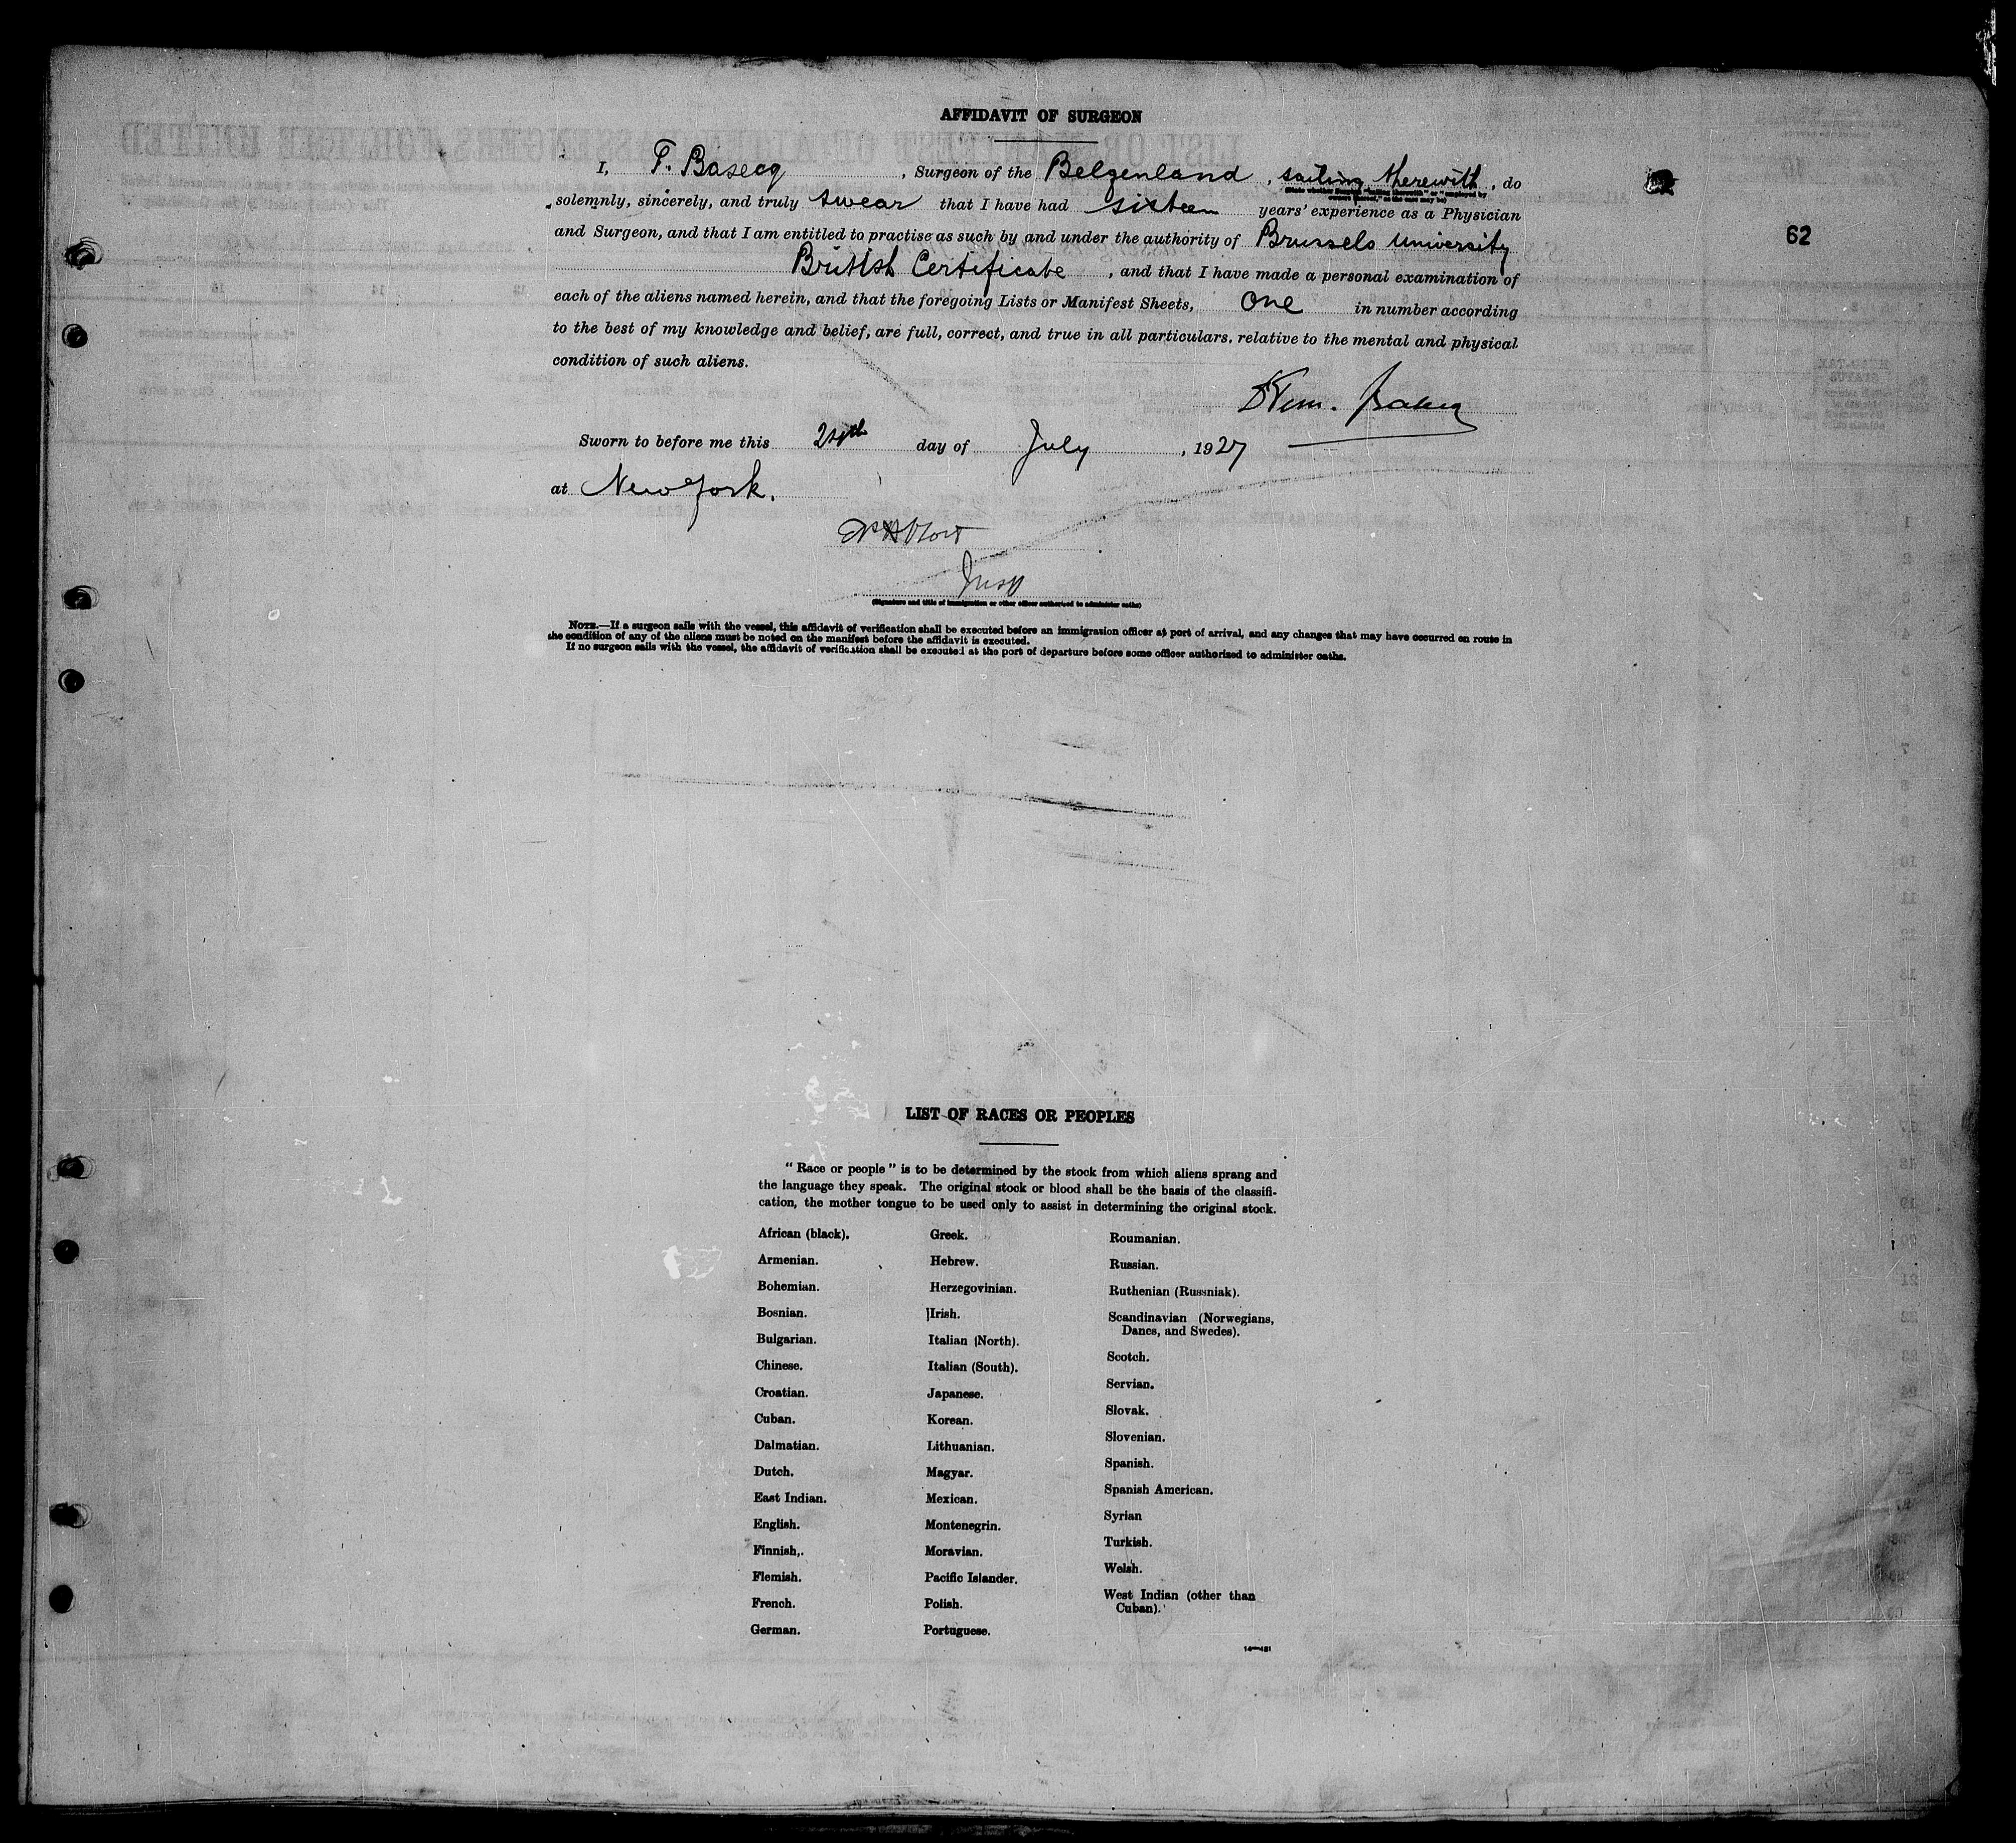 AFFIDAVIT OF SURGEON
I, T. Basecq, Surgeon of the Belgenland, sailing therewith, do
(State whether Surgeon "sailing therewith" or "employed by
owners thereof," as the case may be)
solemnly, sincerely, and truly swear that I have had sixteen years' experience as a Physician
and Surgeon, and that I am entitled to practise as such by and under the authority of Brussels University
British Certificate, and that I have made a personal examination of
each of the aliens named herein, and that the foregoing Lists or Manifest Sheets, one in number according
to the best of my knowledge and belief, are full, correct, and true in all particulars, relative to the mental and physical
condition of such aliens.
Sworn to before me this 24th day of July, 1927
at New York.
(Signature and title of immigration or other officer authorized to administer oaths)
NOTE.—If a surgeon sails with the vessel, this affidavit of verification shall be executed before an immigration officer at port of arrival, and any changes that may have occurred en route in
the condition of any of the aliens must be noted on the manifest before the affidavit is executed.
If no surgeon sails with the vessel, the affidavit of verification shall be executed at the port of departure before some officer authorized to administer oaths.
62
LIST OF RACES OR PEOPLES
"Race or people" is to be determined by the stock from which aliens sprang and
the language they speak. The original stock or blood shall be the basis of the classifi-
cation, the mother tongue to be used only to assist in determining the original stock.
African (black).
Armenian.
Bohemian.
Bosnian.
Bulgarian.
Chinese.
Croatian.
Cuban.
Dalmatian.
Dutch.
East Indian.
English.
Finnish.
Flemish.
French.
German.
Greek.
Hebrew.
Herzegovinian.
Irish.
Italian (North).
Italian (South).
Japanese.
Korean.
Lithuanian.
Magyar.
Mexican.
Montenegrin.
Moravian.
Pacific Islander.
Polish.
Portuguese.
Roumanian.
Russian.
Ruthenian (Russniak).
Scandinavian (Norwegians,
Danes, and Swedes).
Scotch.
Servian.
Slovak.
Slovenian.
Spanish.
Spanish American.
Syrian
Turkish.
Welsh.
West Indian (other than
Cuban).